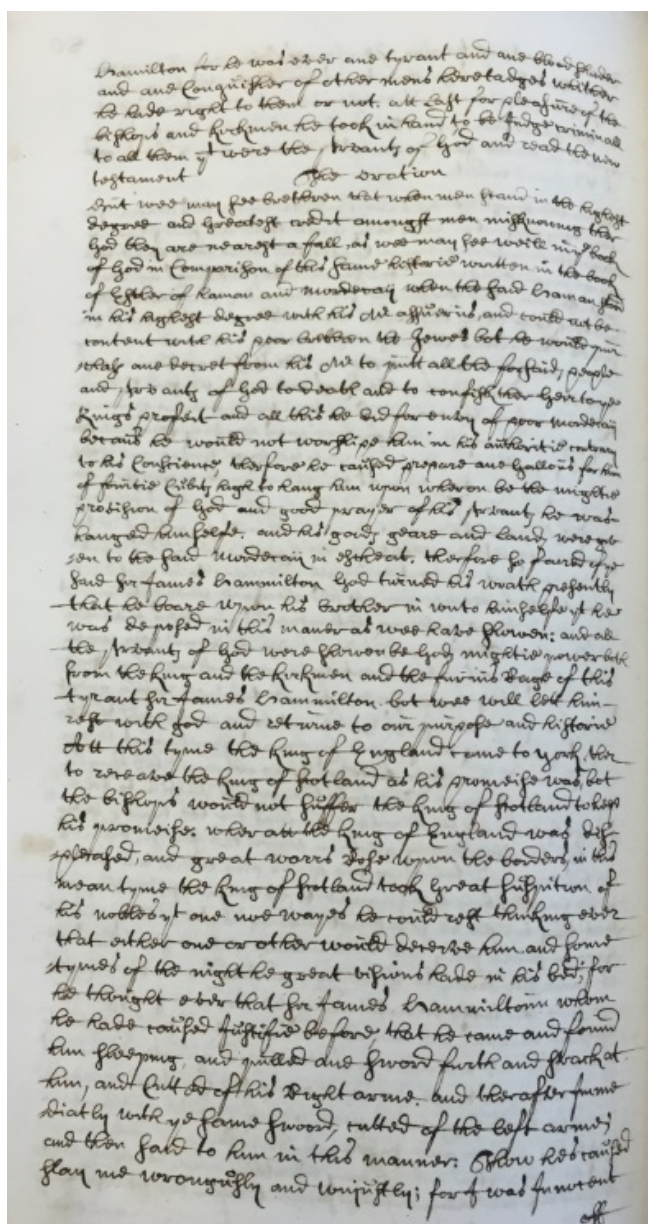 Hamilton for he was ever ane tyrant and ane bloodshedder
and ane Conquishier of other mens heretadges whither
he hade right to them or not. att Last for pleasure of the
bishops and kirkmen he took in hand to be Judge criminall
to all them yt were the servants of God and read the new
testament
The oration
But wee may see brethren that when men stand in the highest
degree and greatest credit amongst men misknowing ther
God they are nearest a fall, as wee may see weill in ye book
of God in Comparison of this same historie written in the book
of Esther of Haman and Mordecay when the said Haman stood
in his highest degree with his Mr assuerus, and could not be
content with his poor brethren the Jewes but he would
ane decret from his Mr to putt all the forsaids people
and servants of God to death and to confisk ther geir to ye
Kings profeit and all this he did for envy of poor mordecay
becaus he would not worshipe him in his authoritie contrary
to his Conscience, therfore he caused prepare ane gallous for him
of fourtie Cubits high to hang him upon wheron be the mightie
provision of God and good prayer of his servants he was
hanged himselfe. and his goods geare and lands were giv
en to the said Mordecay in escheat. therfore so fared it ye
said sir James Hammilton God turned his wrath presently
that he boare upon his brother in unto himselfe yt he
was deposed in this maner as wee have showen; and all
the servants of God were be Gods mightie power both
from the King and the kirkmen and the furius Rage of this
tyrant sir James Hammilton. but wee will lett him
rest with god and returne to our purpose and historie
Att this tyme the King of England came to york ther
to receave the King of Scotland as his promeise was, bot
the bishops would not suffer the King of Scotland to keep
his promeise. wher att the King of England was dis-
pleased, and great warrs Rose upon the borders, in this
mean tyme the King of Scotland took great suspition of
his nobles yt one noe wayes he could rest thinking ever
that either one or other would deceive him and some
tymes of the night he great visions hade in his bed; for
he thought ever that sir James Hammiltoun whom
he hade caused Justifie before, that he came and found
him sleeping, and pulled ane sword furth and strack at
him, and Cutted of his Right arme. and therafter Imme
diatly with ye same sword, cutted of the left arme;
and then said to him in this manner: Thow hes caused
slay me wrongusly and unjustly; for I was Innocent
off